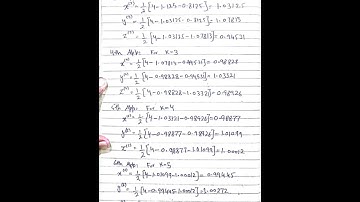 x⁽³⁾ = 1/2 [4-1.125-0.8125] = 1.03125
y⁽³⁾ = 1/2 [4-1.03125-0.8125] = 1.07813
z⁽³⁾ = 1/2 [4-1.03125-1.07813] = 0.94531
4th App: For K=3
x⁽⁴⁾ = 1/2 [4-1.07813-0.94531] = 0.98828
y⁽⁴⁾ = 1/2 [4-0.98828-0.94531] = 1.03321
z⁽⁴⁾ = 1/2 [4-0.98828-1.03321] = 0.98926
5th App: For K=4
x⁽⁵⁾ = 1/2 [4-1.03321-0.98926] = 0.98877
y⁽⁵⁾ = 1/2 [4-0.98877-0.98926] = 1.01099
z⁽⁵⁾ = 1/2 [4-0.98877-1.01099] = 1.00012
6th App: For K=5
x⁽⁶⁾ = 1/2 [4-1.01099-1.00012] = 0.99445
y⁽⁶⁾ = 1/2 [4-0.99445-1.00012] = 1.00272